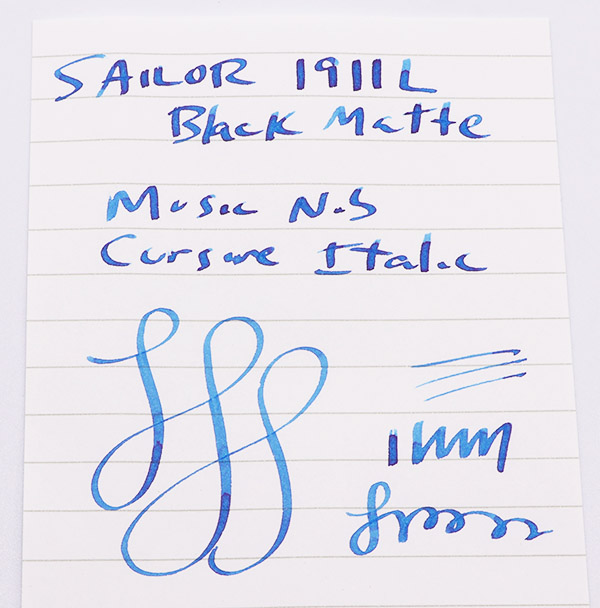 SAILOR 1911L
Black Matte
Music Nib
Cursive Italic